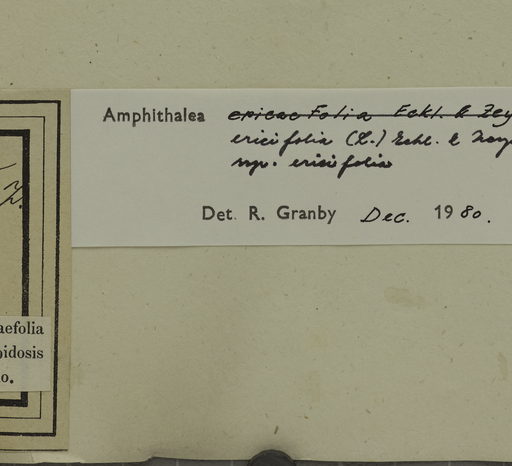 Amphithalea ericaefolia Eckl. & Zey
ericifolia (L.) Eckl. & Zey
ssp. ericifolia
Det. R. Granby Dec. 1980.
Z.
aefolia
pidosis
o.